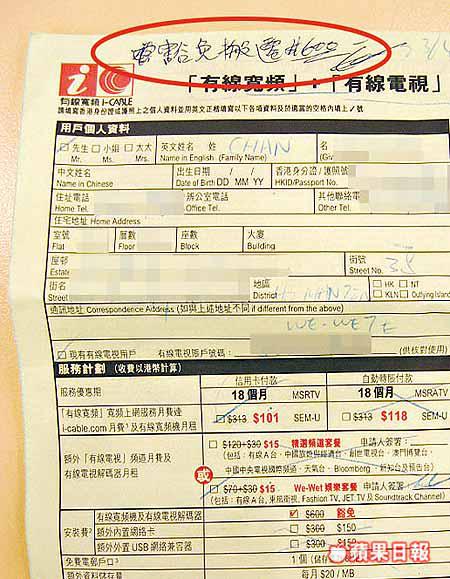 豁免搬遷費$600
有線寬頻 i-CABLE
「有線寬頻」·「有線電視」
請填寫香港身份證或護照上之個人資料並用英文正楷填寫以下各項資料及於適當的空格內填上✓號
用戶個人資料
☑先生 □小姐 □太太
Mr. Ms. Mrs.
英文姓名 (姓)
Name in English (Family Name)
CHAN
名
(Giv
中文姓名
Name in Chinese
出生日期 / /
Date of Birth DD MM YY
香港身分證/護照號
HKID/Passport No.
住址電話
Home Tel.
辦公室電話
Office Tel.
其他聯絡電
Other Tel.
住宅地址 Home Address
室號
Flat
層數
Floor
座數
Block
大廈
Building
屋邨
Estate
街號
Street No.
38
街名
Street
地區
District
□ HK □ NT
□ KLN □ Outlying Island
通訊地址 Correspondence Address (如與上述地址不同 if different from the above)
WE-WETE
☑ 現有有線電視用戶 有線電視賬戶號碼: (供核對使用)
服務計劃 (收費以港幣計算)
服務優惠期
信用卡付款
18個月 MSRTV
自動轉賬付款
18個月 MSRATV
「有線寬頻」寬頻上網服務月費連
i-cable.com 月費¹及有線寬頻機月租
□ $313 $101 SEM-U
□ $313 $118 SEM-U
額外「有線電視」頻道月費及
有線電視解碼器月租
□ $120+$30 $15 精選頻道套餐 申請人簽署:
(包括:有線A台、中國旅遊與經濟台、創世電視台、澳門博覽台、
中國中央電視國際頻道、天氣台、Bloomberg、新知台及報告台)
或
$70+$30 $15 We-Wet 娛樂套餐 申請人簽署
(包括:有線A台、東風衛視、Fashion TV, JET TV 及 Soundtrack Channel)
安裝費²
有線寬頻機及有線電視解碼器
☑ $600 豁免
額外內置網絡卡
□ $300 $150
額外外置 USB 網絡兼容器
□ $300 $150
免費電郵戶口³
1個
額外資料儲存量
每月 $20 / MB
蘋果日報